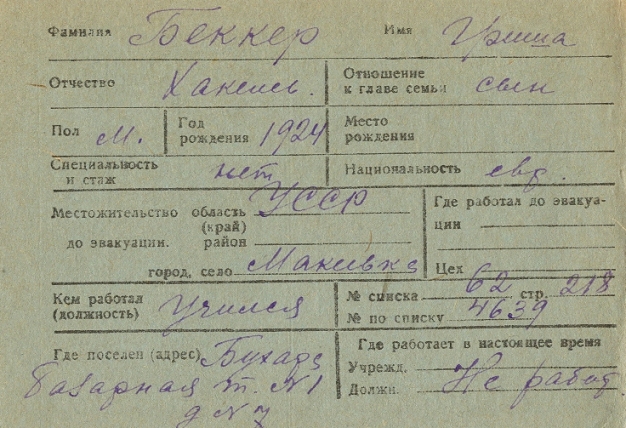 Фамилия Беккер Имя Гриша
Отчество Хакель. Отношение к главе семьи сын
Пол м. Год рождения 1924 Место рождения
Специальность и стаж нет Национальность евр.
Местожительство область (край) УССР Где работал до эвакуа-
до эвакуации. район ции
город, село Макивка Цех
Кем работал (должность) Учился № списка 62 стр. 218
№ по списку 4639
Где поселен (адрес) Бухара Где работает в настоящее время
Базарная т. №1 Учрежд.
д №7 Должн. Не работ